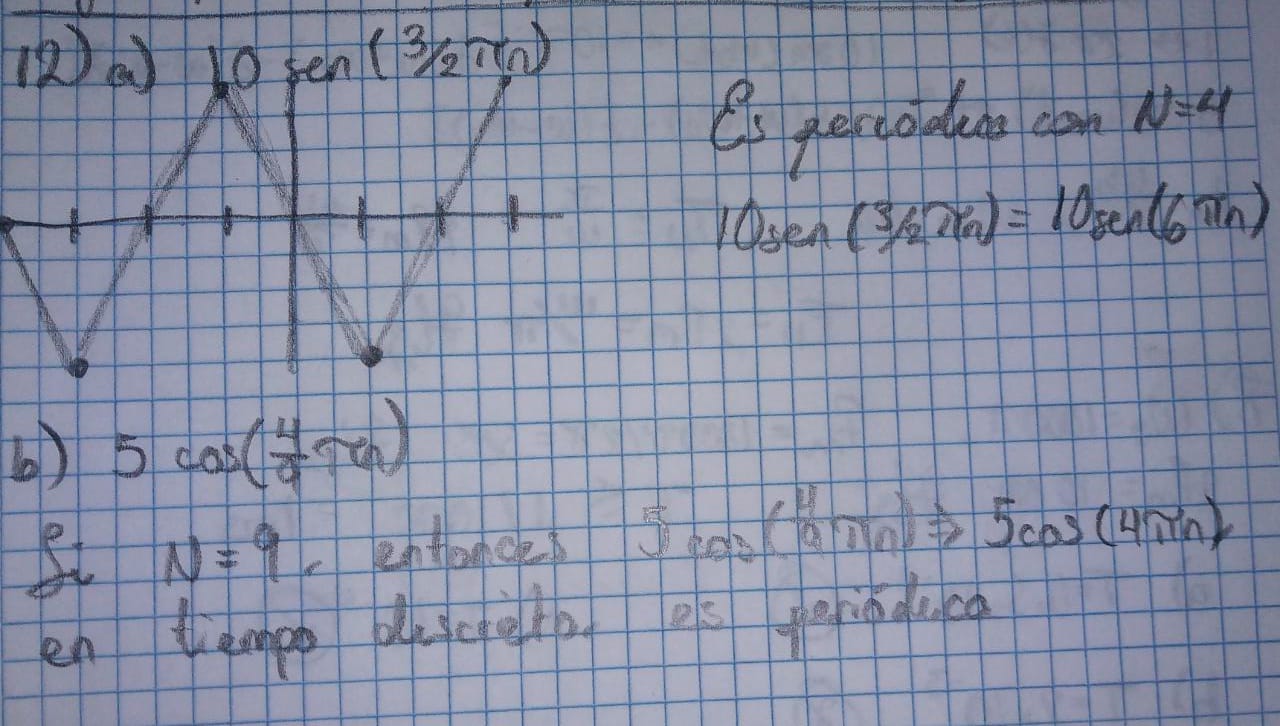 12) a) 10 sen (3/2 πn)
Es periódica con N=4
10sen (3/2 πn) = 10sen(6 πn)
b) 5 cos(4/9 πn)
Si N=9. entonces 5 cos (4/9 πn) ⇒ 5cos (4πn),
en tiempo discreto. es periódica